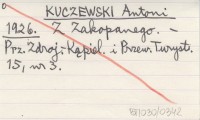 KUCZEWSKI Antoni
1926. Z Zakopanego. –
Prz. Zdroj.-Kąpiel. i Przew. Turyst.
15, nr 3.